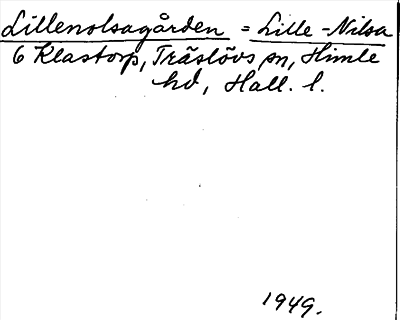 Lillenolsagården = Lille-Nilsa
6 Klastorp, Träslövs sn, Himle
hd, Hall. l.
1949.